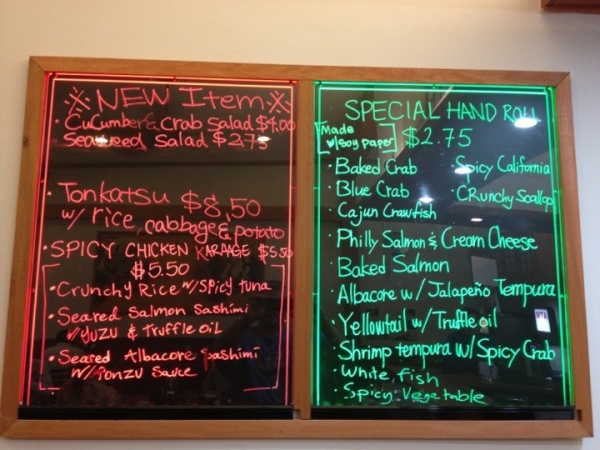 ※NEW Item※
• Cucumber & Crab Salad $4.00
Seaweed Salad $2.75
• Tonkatsu $8,50
w/ rice, cabbage & potato
• SPICY CHICKEN KARAAGE $5.50
$5.50
• Crunchy Rice w/ Spicy tuna
• Seared Salmon Sashimi
w/ YUZU & truffle oil
• Seared Albacore Sashimi
w/ Ponzu Sauce
SPECIAL HAND ROLL
[Made w/soy paper] $2.75
• Baked Crab
• Blue Crab
Cajun Crawfish
• Spicy California
• CRunchy Scallop
Philly Salmon & Cream Cheese
Baked Salmon
Albacore w/ Jalapeño Tempura
Yellowtail w/ Truffle oil
Shrimp tempura w/ Spicy Crab
• White fish
• Spicy Vegetable